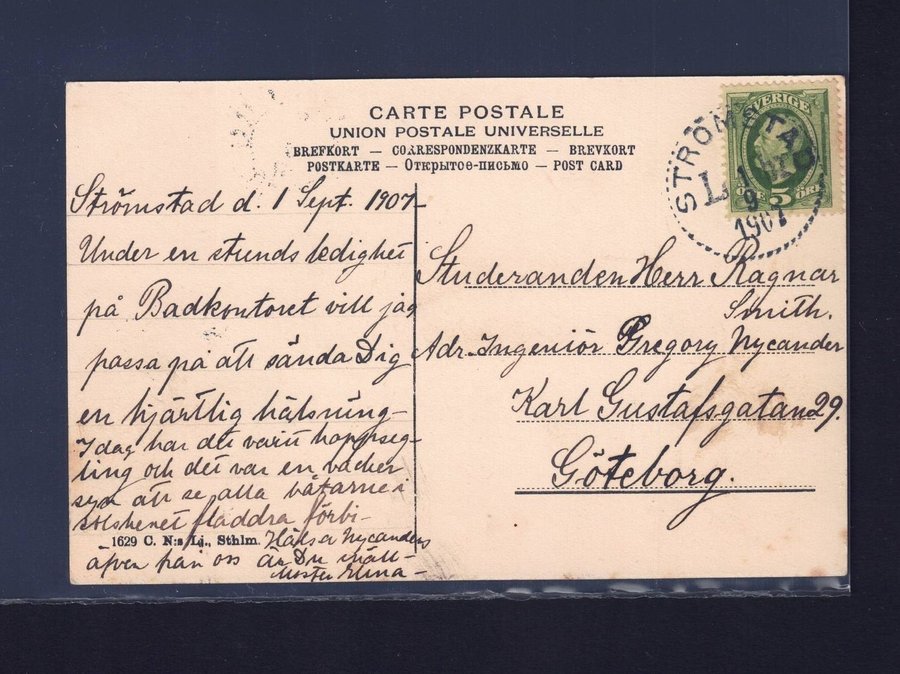 CARTE POSTALE
UNION POSTALE UNIVERSELLE
BREFKORT — CORRESPONDENZKARTE — BREVKORT
POSTKARTE — Открытое-письмо — POST CARD
SVERIGE
5
ÖRE
STRÖMSTAD
1
9
1907
Strömstad d. 1 Sept. 1907–
Under en stunds ledighet
på Badkontoret vill jag
passa på att sända Dig
en hjärtlig hälsning–
I dag har det varit kappseg–
ling och det var en vacker
syn att se alla båtarne i
solskenet fladdra förbi–
Hälsa Nycanders
äfven från oss är Du snäll–
Moster Elina–
1629 C. N:s Lj., Sthlm.
Studeranden Herr Ragnar
Smith.
Adr. Ingeniör Gregory Nycander
Karl Gustafsgatan 29.
Göteborg.